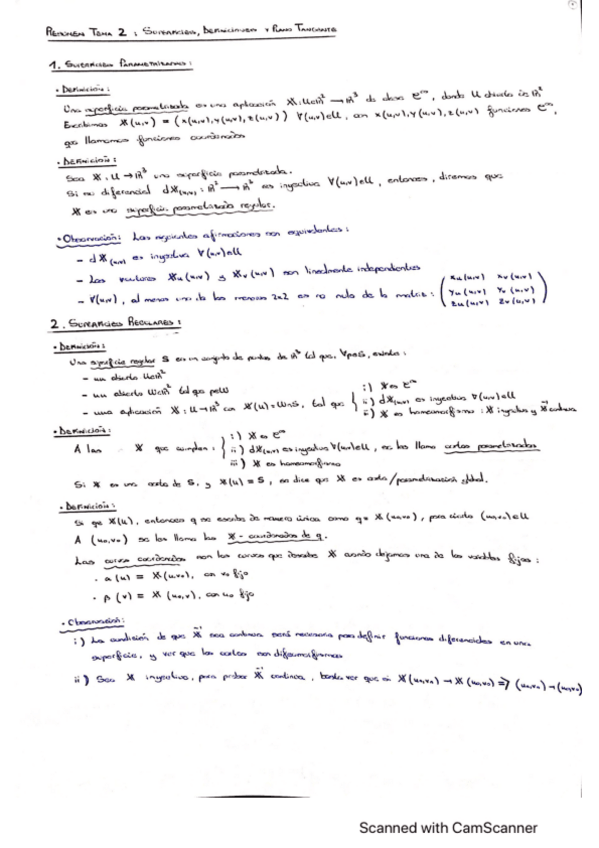 RESUMEN TEMA 2 : SUPERFICIES, DEFINICIONES Y PLANO TANGENTE
1. SUPERFICIES PARAMETRIZADAS :
• DEFINICIÓN :
Una superficie parametrizada es una aplicación 𝕏 : U⊂ℝ² → ℝ³ de clase C^∞, donde U abierto de ℝ²
Escribimos 𝕏(u,v) = (x(u,v), y(u,v), z(u,v)) ∀(u,v)∈U, con x(u,v), y(u,v), z(u,v) funciones C^∞,
que llamamos funciones coordenadas
• DEFINICIÓN :
Sea 𝕏 : U → ℝ³ una superficie parametrizada.
Si su diferencial d𝕏(u,v) : ℝ² → ℝ³ es inyectiva ∀(u,v)∈U, entonces, diremos que
𝕏 es una superficie parametrizada regular.
• Observación: Las siguientes afirmaciones son equivalentes :
- d𝕏(u,v) es inyectiva ∀(u,v)∈U
- Los vectores 𝕏u(u,v) y 𝕏v(u,v) son linealmente independientes
- ∀(u,v), al menos uno de los menores 2x2 es no nulo de la matriz : ( xu(u,v) xv(u,v)
yu(u,v) yv(u,v)
zu(u,v) zv(u,v) )
2. SUPERFICIES REGULARES :
• DEFINICIÓN :
Una superficie regular S es un conjunto de puntos de ℝ³ tal que, ∀p∈S, existen :
- un abierto U⊂ℝ²
- un abierto W⊂ℝ³ tal que p∈W
- una aplicación 𝕏 : U → ℝ³ con 𝕏(U) = W∩S, tal que { i) 𝕏 es C^∞
ii) d𝕏(u,v) es inyectiva ∀(u,v)∈U
iii) 𝕏 es homeomorfismo : 𝕏 inyectiva y 𝕏⁻¹ continua
• DEFINICIÓN :
A las 𝕏 que cumplen : { i) 𝕏 es C^∞
ii) d𝕏(u,v) es inyectiva ∀(u,v)∈U, se les llama cartas parametrizadas
iii) 𝕏 es homeomorfismo
Si 𝕏 es una carta de S, y 𝕏(U) = S, se dice que 𝕏 es carta/parametrización global.
• DEFINICIÓN :
Si q∈𝕏(U), entonces q se escribe de manera única como q = 𝕏(u₀,v₀), para cierto (u₀,v₀)∈U
A (u₀,v₀) se les llama las 𝕏 - coordenadas de q.
Las curvas coordenadas son las curvas que describe 𝕏 cuando dejamos una de las variables fijas :
• α(u) = 𝕏(u,v₀), con v₀ fijo
• β(v) = 𝕏(u₀,v), con u₀ fijo
• Observación :
i) La condición de que 𝕏⁻¹ sea continua será necesaria para definir funciones diferenciables en una
superficie, y ver que las cartas son difeomorfismos
ii) Sea 𝕏 inyectiva, para probar 𝕏⁻¹ continua, basta ver que si 𝕏(un,vn) → 𝕏(u₀,v₀) ⇒ (un,vn) → (u₀,v₀)
Scanned with CamScanner